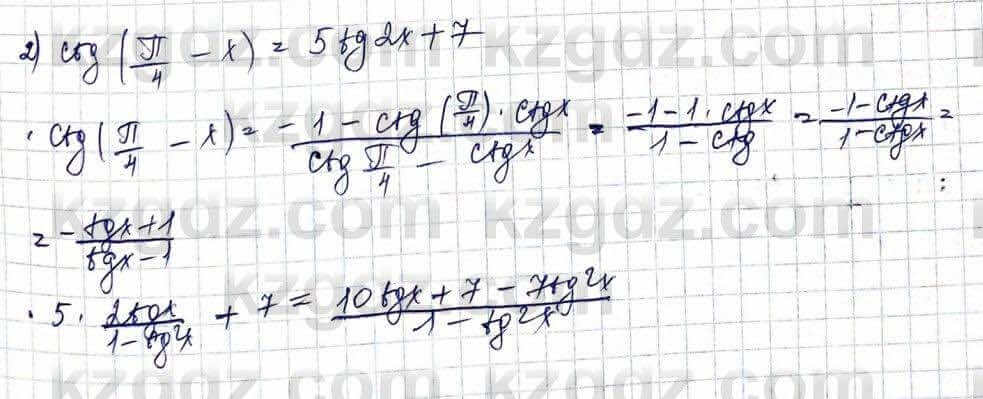 2) ctg (π/4 - x) = 5tg2x + 7
· ctg(π/4 - x) = (-1 - ctg(π/4) · ctgx)/(ctg π/4 - ctgx) = (-1 - 1 · ctgx)/(1 - ctg) = (-1 - ctgx)/(1 - ctgx) =
= - (tgx + 1)/(tgx - 1)
· 5 · 2tgx/(1 - tg²x) + 7 = (10tgx + 7 - 7tg²x)/(1 - tg²x)
kzgdz.com